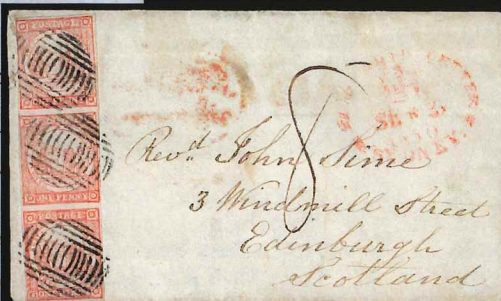 POSTAGE
ONE PENNY
POSTAGE
ONE PENNY
POSTAGE
8
SYDNEY
Revd. John Sime
3 Windmill Street
Edinburgh
Scotland